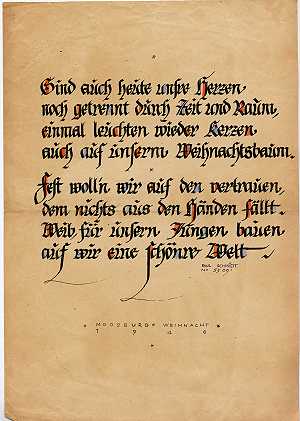 Sind auch heute unsre Herzen
noch getrennt durch Zeit und Raum,
einmal leuchten wieder Kerzen
auch auf unserm Weihnachtsbaum.
Fest woll'n wir auf den vertrauen,
dem nichts aus den Händen fällt.
Weib für unsern Jungen bauen
auf wir eine schönre Welt.
PAUL SCHMIDT
MOOSBURG * WEIHNACHT
1946